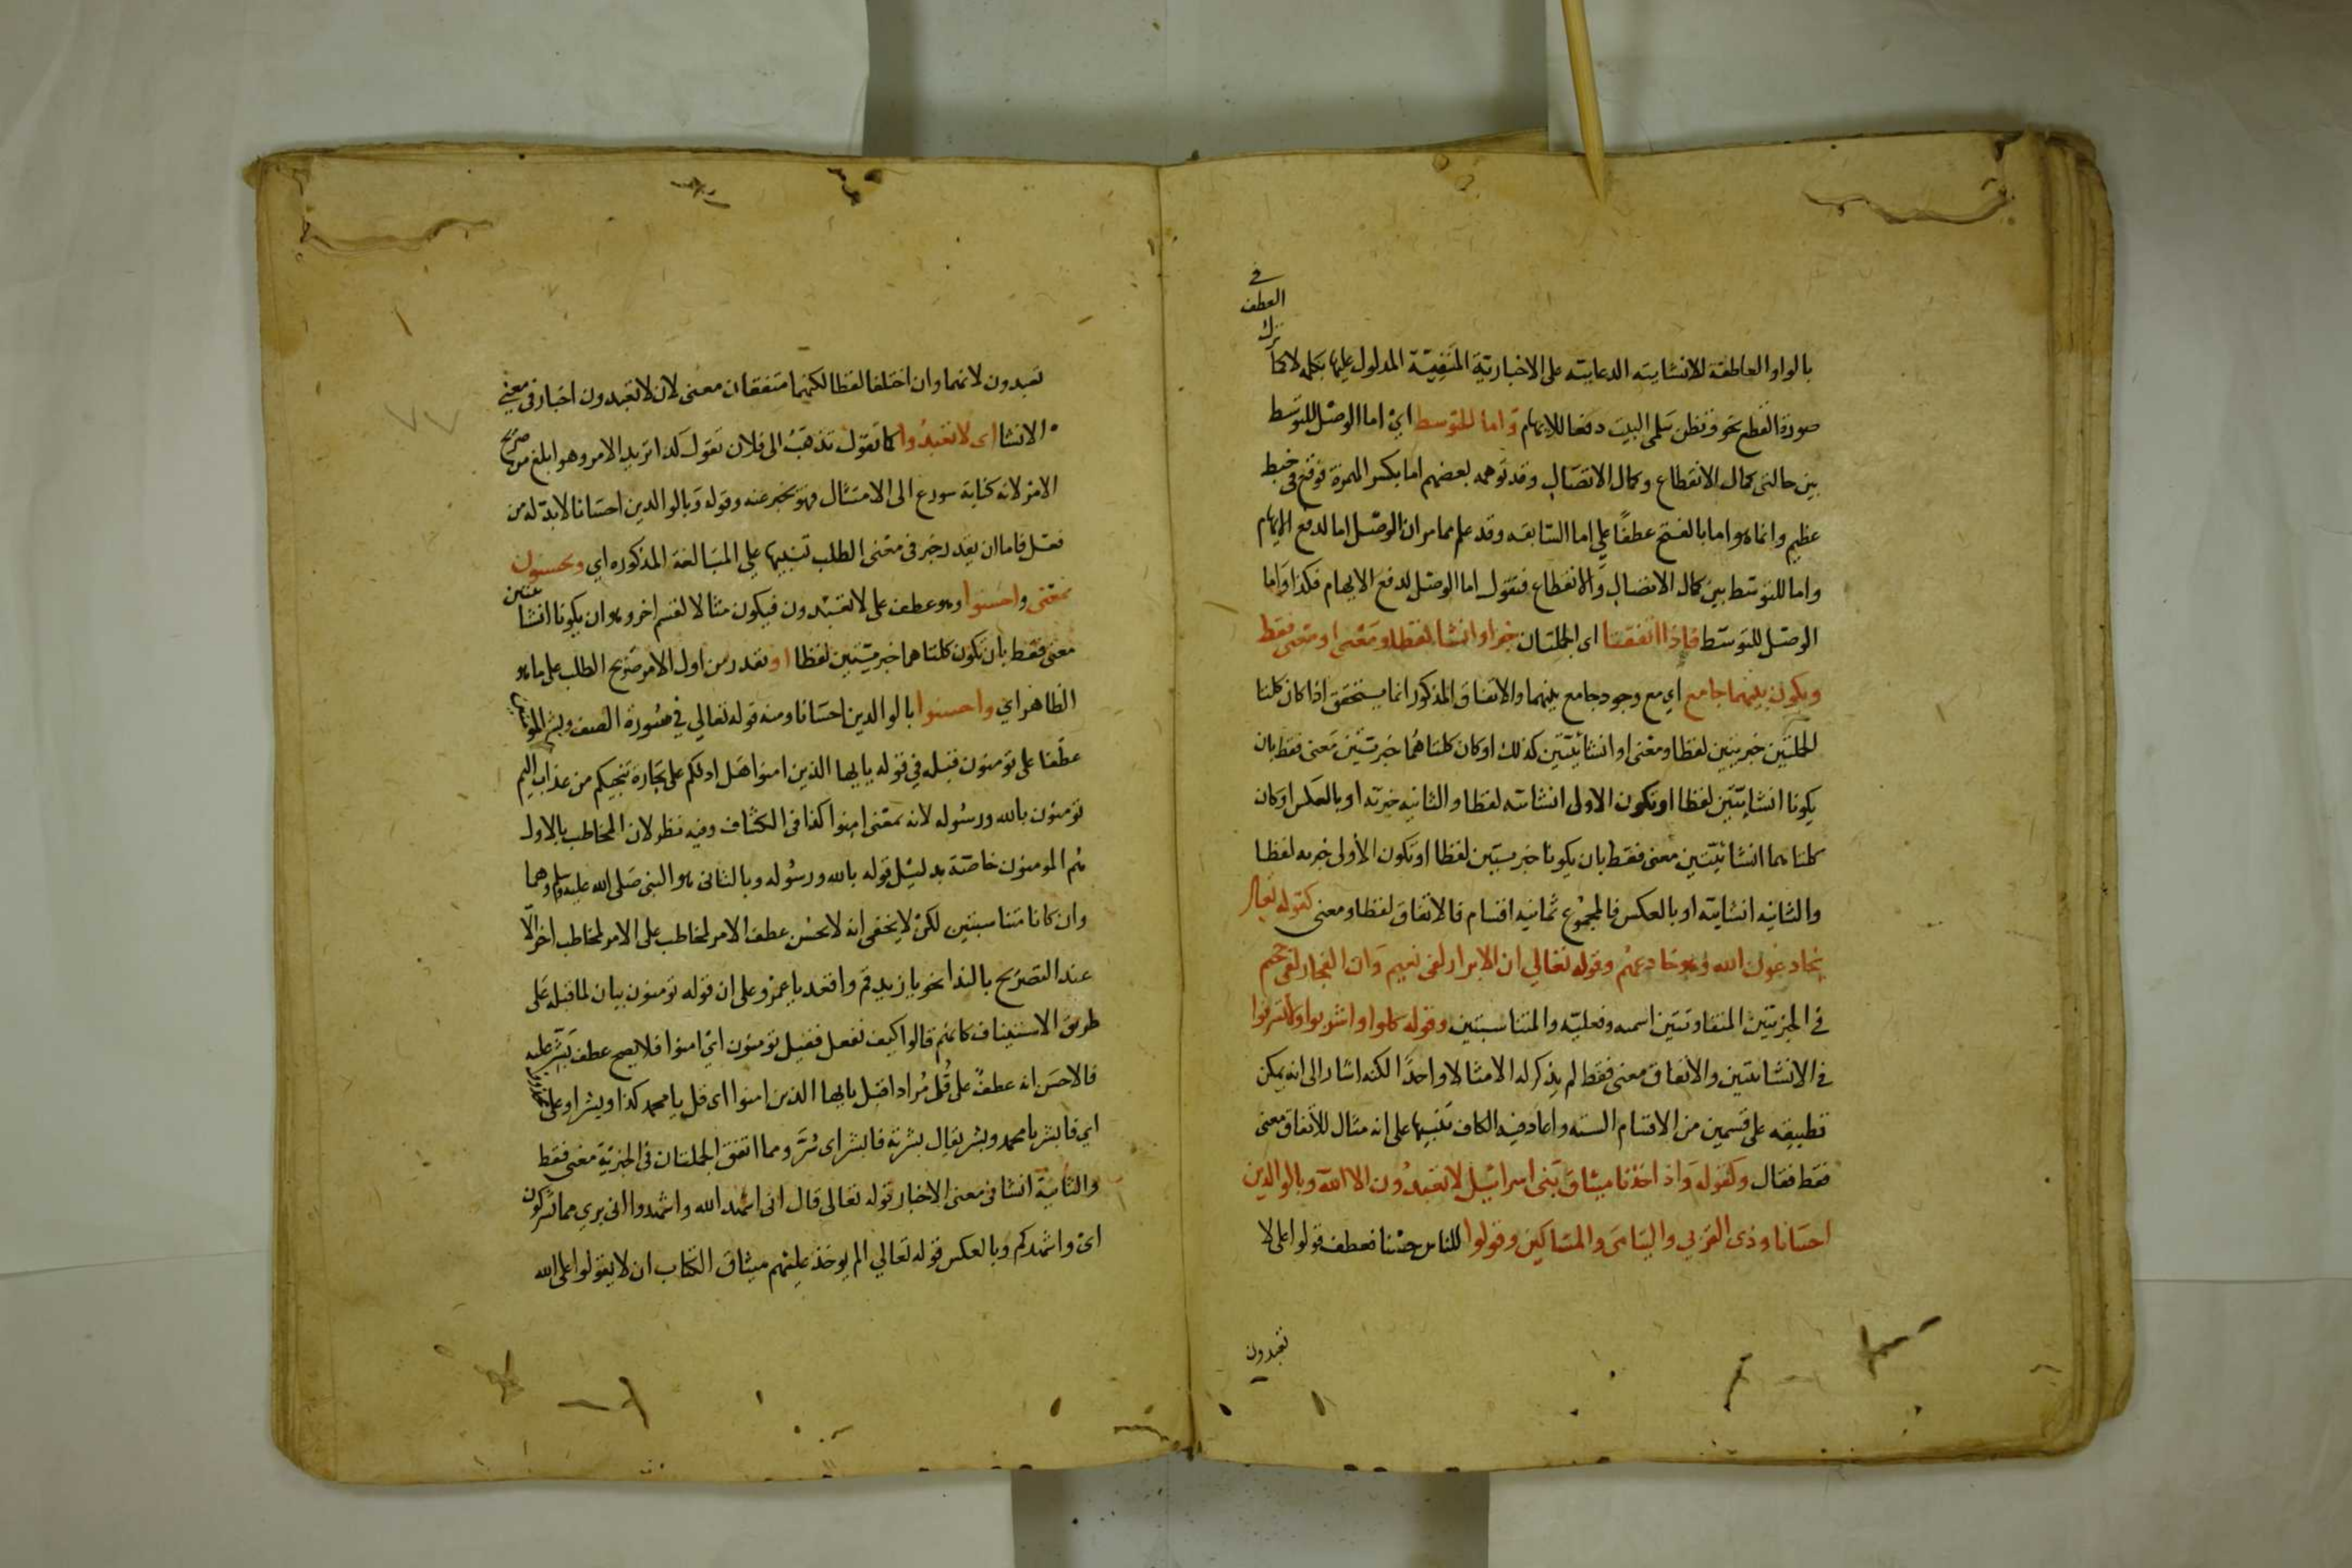 في
العطف
ترك
بالواو العاطفة للانشايته الدعايته على الاخبارية المنفية المدلول عليها بكلمه لا كما
صورة القطع نحو وتظن سلمى البيت دفعا للايهام واما للتوسط اي اما الوصل للتوسط
بين حالتى كمال الانقطاع وكمال الاتصال وقد توهمه بعضهم اما بكسر الهمزة فوقع في خبط
عظيم وانما هو اما بالفتح عطفا على اما السابقه وقد علم مما مر ان الوصل اما لدفع الايهام
واما للتوسط بين كمال الاتصال والانقطاع فنقول اما الوصل لدفع الايهام فكذا واما
الوصل للتوسط فاذا اتفقتا اى الجملتان خبرا وانشا لفظا ومعنى او معنى فقط
ويكون بينهما جامع اي مع وجود جامع بينهما والاتفاق المذكور انما يستحقق اذا كان كلتا
الجملتين خبريتين لفظا ومعنى او انشائيتين كذلك او كان كلتاهما خبريتين معنى فقط بان
يكونا انشايتين لفظا او تكون الاولى انشايته لفظا والثانيه خبريه او بالعكس او كان
كلتاهما انشائيتين معنى فقط بان يكونا خبريتين لفظا او تكون الأولى خبريه لفظا
والثانيه انشايته او بالعكس فالمجموع ثمانيه اقسام فالاتفاق لفظا ومعنى كقوله تعالى
يخادعون الله وهو خادعهم وقوله تعالى ان الابرار لفى نعيم وان الفجار لفى جحيم
في الخبريتين المتفاوتتين اسميه وفعليه والمتناسبتين وقوله كلوا واشربوا ولا تسرفوا
في الانشائتين والاتفاق معنى فقط لم يذكر له الا مثالا واحدا لكنه اشار الى انه يمكن
تطبيقه على قسمين من الاقسام السته واعاد فيه الكاف تنبيها على انه مثال للاتفاق معنى
فقط فقال وكقوله واذ اخذنا ميثاق بنى اسرائيل لا تعبدون الا الله وبالوالدين
احسانا وذى القربى واليتامى والمساكين وقولوا للناس حسنا فعطف قولوا على لا
تعبدون
تعبدون لانهما وان اختلفا لفظا لكنهما متفقان معنى لان لا تعبدون اخبار في معنى
الانشا اى لا تعبدوا كما تقول تذهب الى فلان تقول كذا تريد الامر وهو ابلغ من صريح
الامر لانه كناية سورع الى الامتثال فهو يخبر عنه وقوله وبالوالدين احسانا لابد له من
فعل فاما ان يقدر خبر في معنى الطلب تنبيها على المبالغة المذكوره اي وتحسنون
بمعنى واحسنوا وهو عطف على لا تعبدون فيكون مثالا لقسم اخر وهو ان يكونا انشا
معنى فقط بان تكون كلتاهما خبريتين لفظا او يقدر من اول الامر صريح الطلب على ما هو
الظاهر اي واحسنوا بالوالدين احسانا ومنه قوله تعالى في سورة الصف وبشر المؤمنين
عطفا على تؤمنون قبله في قوله يا ايها الذين امنوا هل ادلكم على تجارة تنجيكم من عذاب اليم
تؤمنون بالله ورسوله لانه بمعنى امنوا كذا فى الكشاف وفيه نظر لان المخاطب بالاول
هم المومنون خاصة بدليل قوله بالله ورسوله وبالثانى هو النبى صلى الله عليه وسلم وهما
وان كانا متناسبتين لكن لا يخفى انه لا يحسن عطف الامر لمخاطب على الامر لمخاطب اخر الا
عند التصريح بالندا نحو يا زيد قم واقعد يا عمرو على ان قوله تؤمنون بيان لما قبله على
طريق الاستيناف كانهم قالوا كيف نفعل فقيل تؤمنون اى امنوا فلا يصح عطف بشر عليه
فالاحسن انه عطف على قل مرادا قبل يا ايها الذين امنوا اى قل يا محمد كذا وبشر او على
اي فابشر يا محمد وبشر يقال بشرته فابشر اى سر ومما اتفق الجملتان في الخبرية معنى فقط
والثانية انشا في معنى الاخبار قوله تعالى قال انى اشهد الله واشهدوا انى بري مما تشركون
اى واشهدكم وبالعكس قوله تعالى الم يوخذ عليهم ميثاق الكتاب ان لا يقولوا على الله